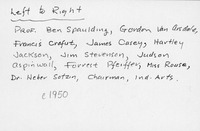 Left to Right
Prof. Ben Spaulding, Gordon Van Arsdale,
Francis Crofut, James Carey, Hartley
Jackson, Jim Stevenson, Judson
Aspinwall, Forrest Pfeiffer, Miss Rouse,
Dr. Heber Sotzin, Chairman, Ind. Arts.
c1950